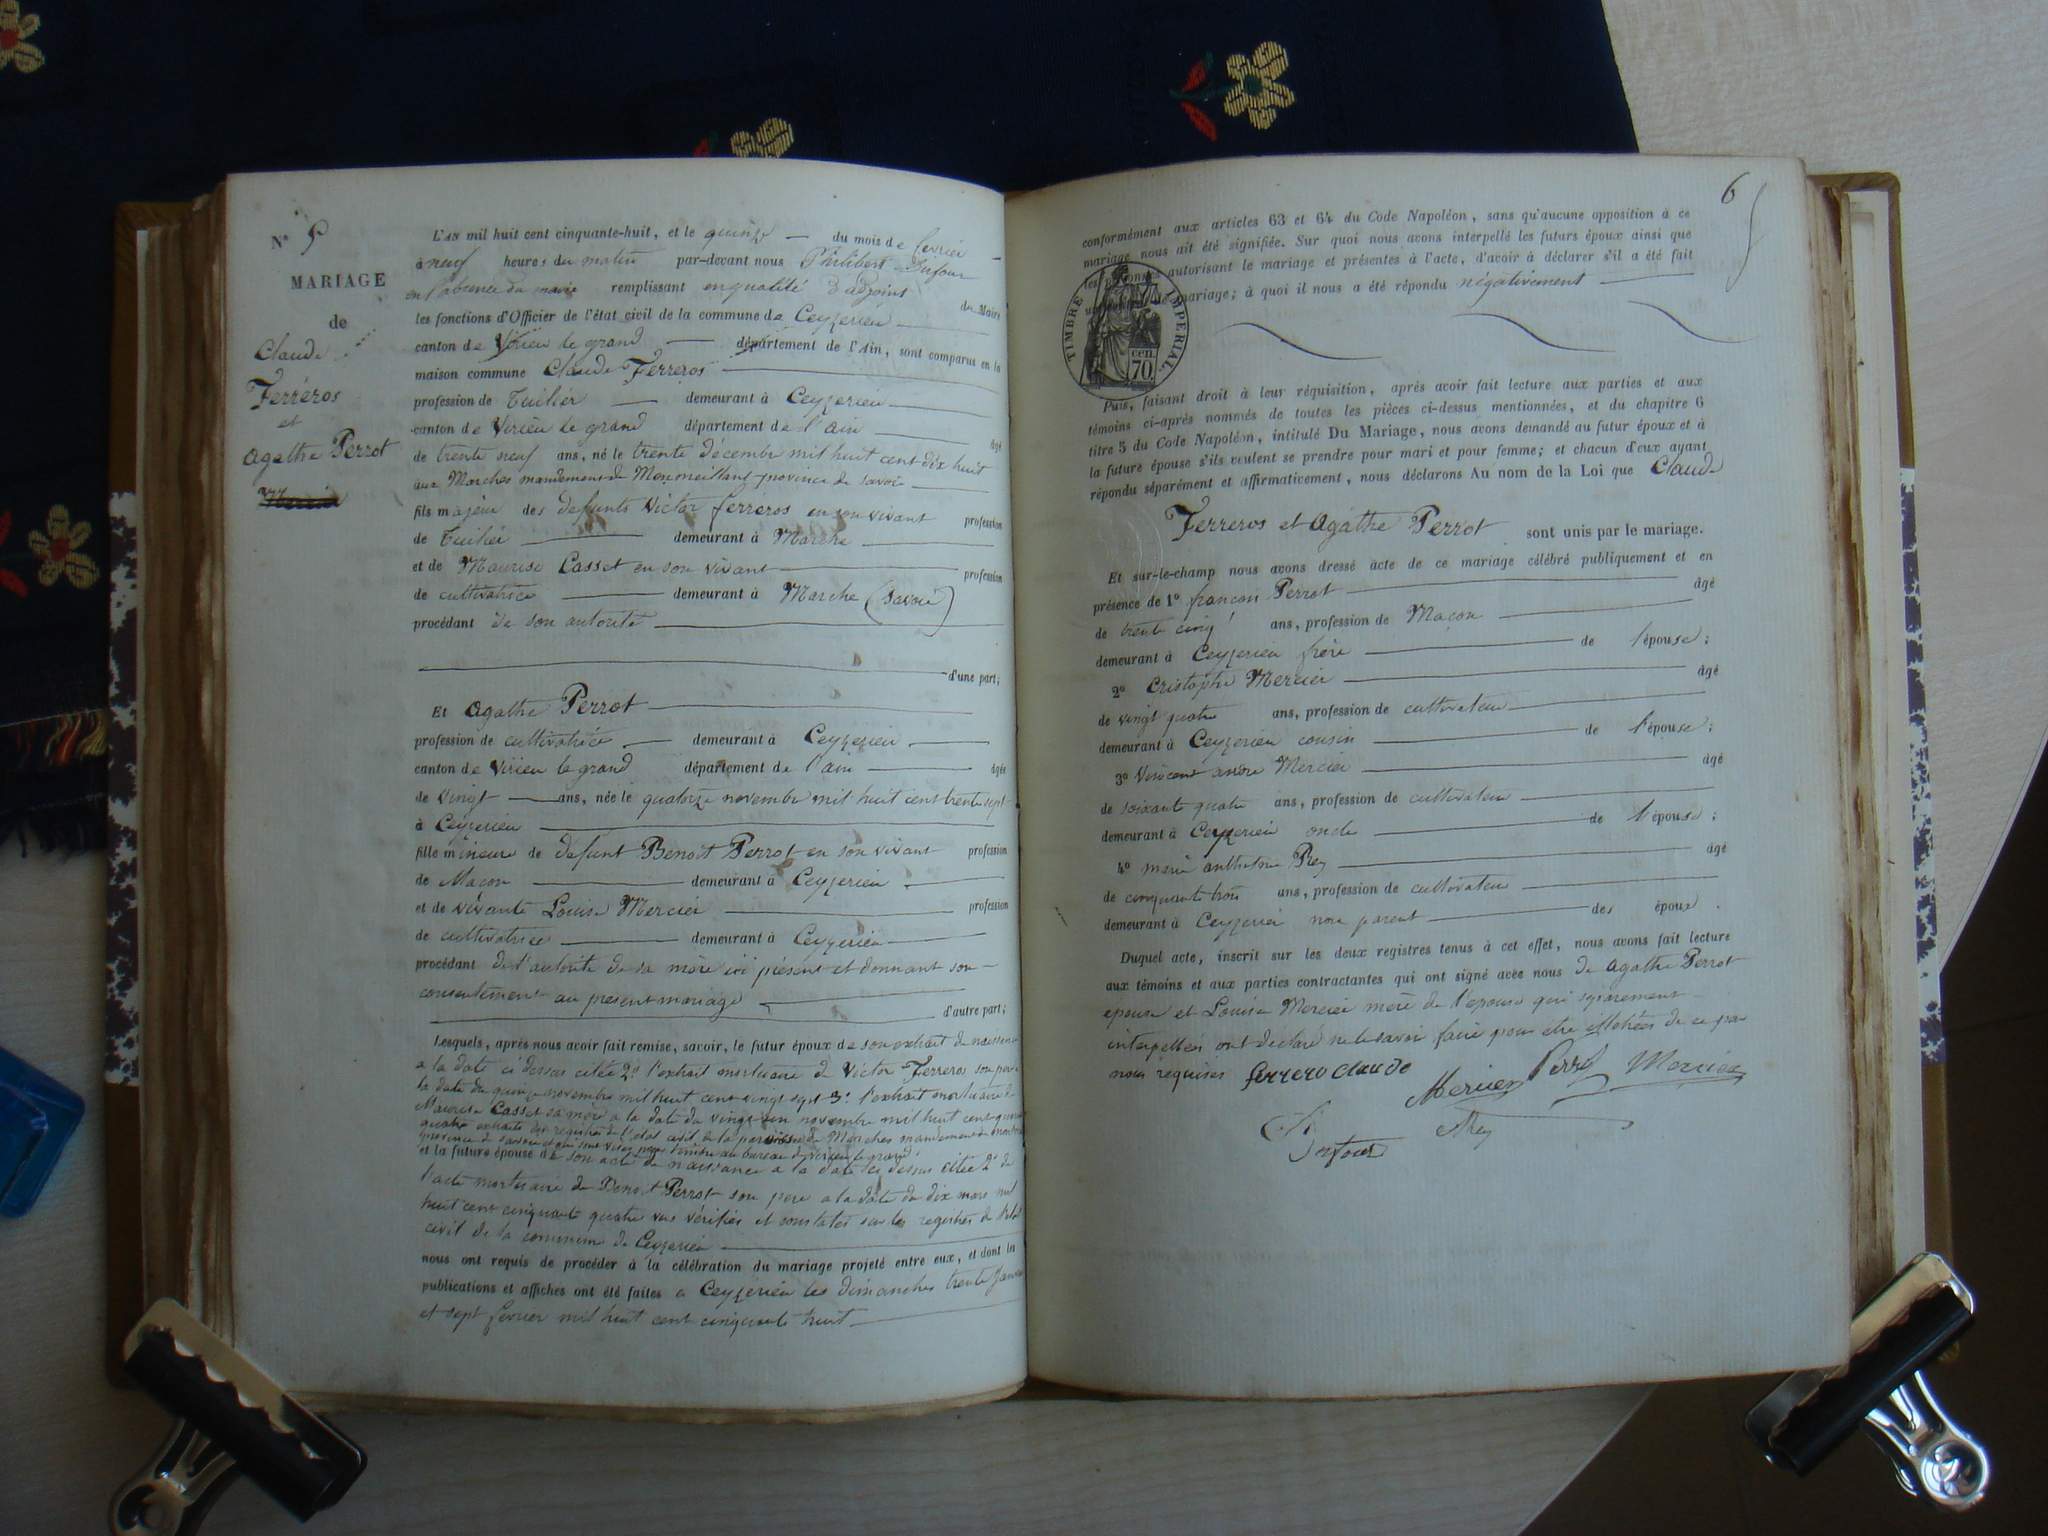 N° 5
MARIAGE
de
Claude
Ferreros
et
Agathe Perrot
L'AN mil huit cent cinquante-huit, et le quinze du mois de fevrier
à neuf heures du matin par-devant nous Philibert Dufour
en l'absence du maire remplissant en qualité d'adjoint du Maire
les fonctions d'Officier de l'état civil de la commune de Ceyzerieu
canton de Virieu le grand département de l'Ain, sont comparus en la
maison commune Claude Ferreros
profession de Tuilier demeurant à Ceyzerieu
canton de Virieu le grand département de l'ain âgé
de trente neuf ans, né le trente décembre mil huit cent dix huit
aux Marches mandement de Monmeillant province de savoie
fils majeur des defunts Victor ferreros en son vivant profession
de Tuilier demeurant à Marche
et de Maurise Casset en son vivant profession
de cultivatrice demeurant à Marche (Savoie)
procédant de son autorité
d'une part;
Et Agathe Perrot
profession de cultivatrice demeurant à Ceyzerieu
canton de Virieu le grand département de l'ain âgée
de vingt ans, née le quatorze novembre mil huit cent trente sept
à Ceyzerieu
fille mineure de defunt Benoit Perrot en son vivant profession
de Macon demeurant à Ceyzerieu
et de vivante Louise Mercier profession
de cultivatrice demeurant à Ceyzerieu
procédant de l'autorité de sa mère ici présent et donnant son
consentement au present mariage
d'autre part;
Lesquels, après nous avoir fait remise, savoir, le futur époux de son extrait de naissance
a la date ci dessus citée 2° l'extrait mortuaire de Victor Ferreros son père
la date du quinze novembre mil huit cent vingt sept 3° l'extrait mortuaire de
Maurise Casset sa mère a la date du vingt un novembre mil huit cent quarante
quatre extraits des registres de l'etat civil de la paroisse de Marches mandement de
province de savoie et qui sont visés pour timbre au bureau de virieu le grand
et la future épouse de son acte de naissance a la date ci dessus citée 2° de
l'acte mortuaire de Benoit Perrot son pere a la date du dix mars mil
huit cent cinquante quatre vus vérifiés et constatés sur les registres de l'etat
civil de la commune de Ceyzerieu
nous ont requis de procéder à la célébration du mariage projeté entre eux, et dont les
publications et affiches ont été faites a Ceyzerieu les dimanches trente Janvier
et sept fevrier mil huit cent cinquante huit
6
conformément aux articles 63 et 64 du Code Napoléon, sans qu'aucune opposition à ce
mariage nous ait été signifiée. Sur quoi nous avons interpellé les futurs époux ainsi que
les personnes autorisant le mariage et présentes à l'acte, d'avoir à déclarer s'il a été fait
un contrat de mariage; à quoi il nous a été répondu négativement
TIMBRE IMPERIAL
cen.
70
Puis, faisant droit à leur réquisition, après avoir fait lecture aux parties et aux
témoins ci-après nommés de toutes les pièces ci-dessus mentionnées, et du chapitre 6
titre 5 du Code Napoléon, intitulé Du Mariage, nous avons demandé au futur époux et à
la future épouse s'ils veulent se prendre pour mari et pour femme; et chacun d'eux ayant
répondu séparément et affirmativement, nous déclarons Au nom de la Loi que Claude
Ferreros et Agathe Perrot sont unis par le mariage.
Et sur-le-champ nous avons dressé acte de ce mariage célébré publiquement et en
présence de 1° françois Perrot âgé
de trente cinq ans, profession de Maçon
demeurant à Ceyzerieu frère de l'épouse;
2° Cristophe Mercier âgé
de vingt quatre ans, profession de cultivateur
demeurant à Ceyzerieu cousin de l'épouse;
3° Vincent andre Mercier âgé
de soixante quatre ans, profession de cultivateur
demeurant à Ceyzerieu oncle de l'épouse;
4° marie anthelme Rey âgé
de cinquante trois ans, profession de cultivateur
demeurant à Ceyzerieu non parent des époux.
Duquel acte, inscrit sur les deux registres tenus à cet effet, nous avons fait lecture
aux témoins et aux parties contractantes qui ont signé avec nous de Agathe Perrot
epouse et Louise Mercier mère de l'epouse qui séparement
interpellées ont déclaré ne le savoir faire pour etre illetrées de ce par
nous requises ferrero claude
Mercier Perrot Mercier
Dufour Rey